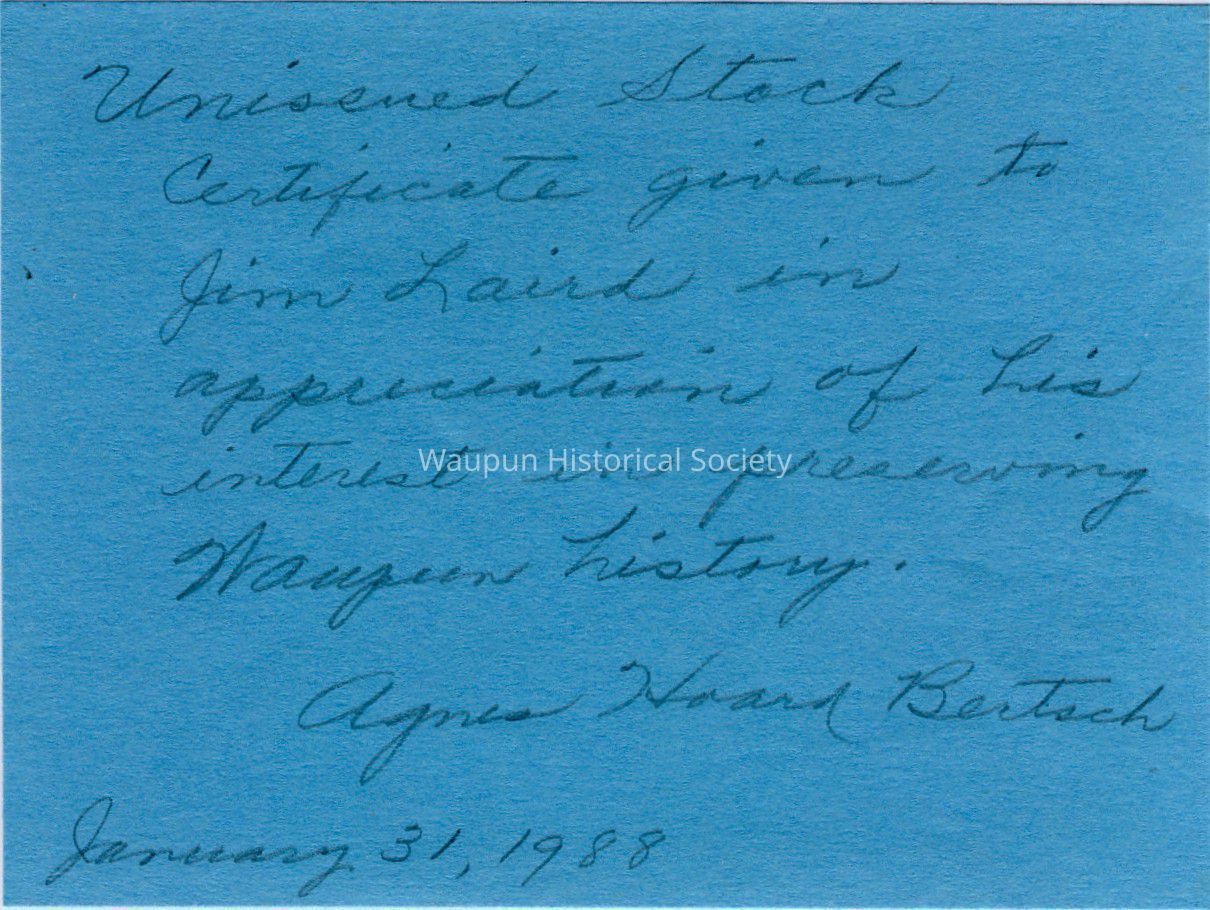 Unissued Stock
Certificate given to
Jim Laird in
appreciation of his
interest in preserving
Waupun Historical Society
Waupun history.
Agnes Hoard Bertsch
January 31, 1988